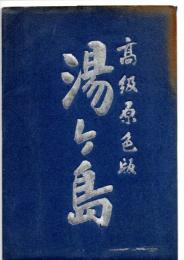 高級原色版
湯ヶ島